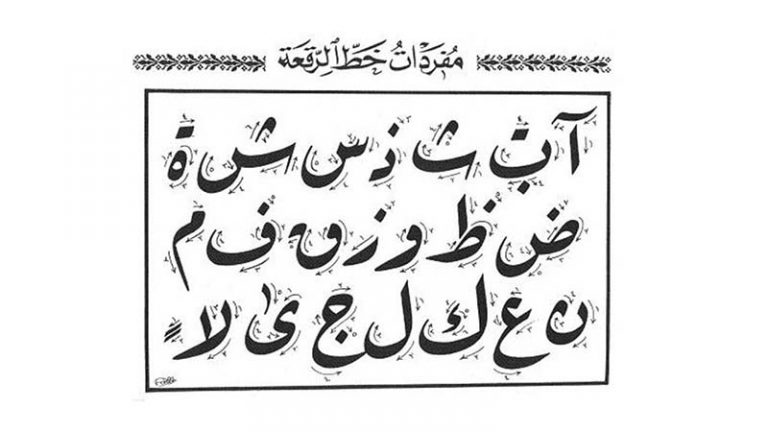 مُفرَدَاتُ خَطِّ الرِّقعَة
آ ب ث ذ س ش ة
ض ظ و ز ق ف م
ن ع ك ل ج ى لا